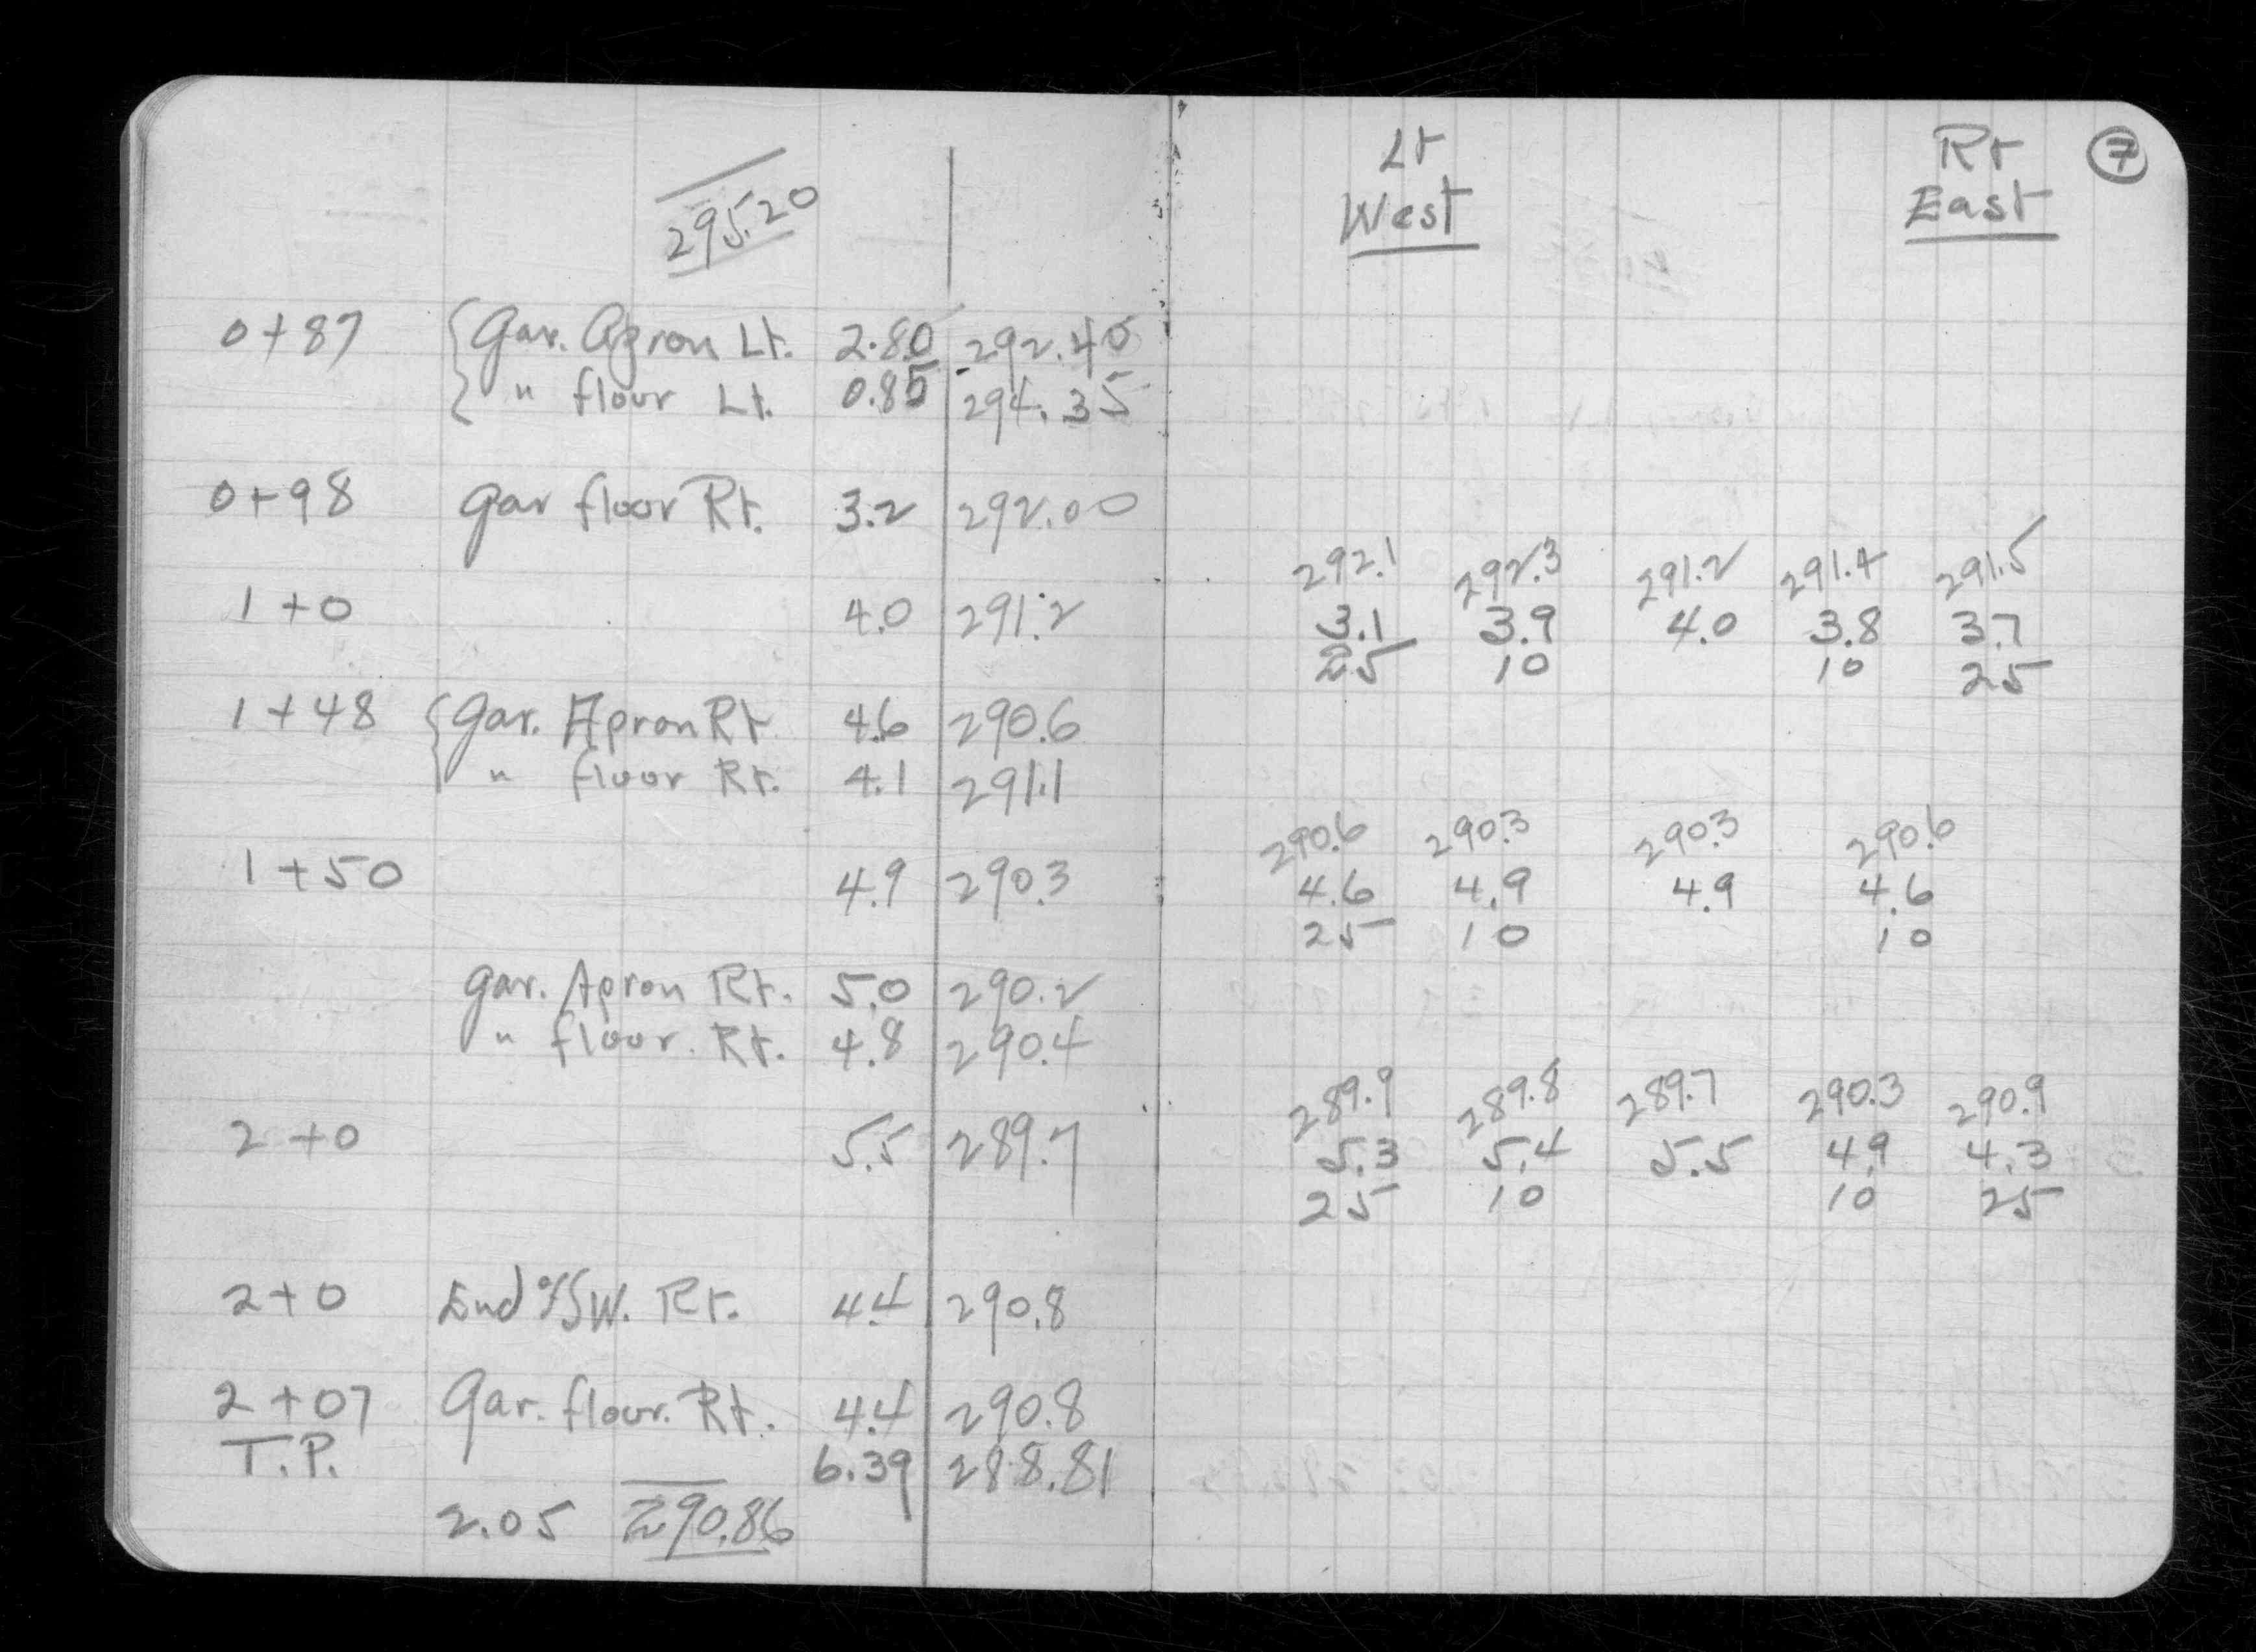 295.20
0+87 Gar. Apron Lt. 2.80 292.40
" floor Lt. 0.85 294.35
0+98 Gar floor Rt. 3.2 292.00
1+0 4.0 291.2
1+48 Gar. Apron Rt 4.6 290.6
" floor Rt. 4.1 291.1
1+50 4.9 290.3
Gar. Apron Rt. 5.0 290.2
" floor. Rt. 4.8 290.4
2+0 5.5 289.7
2+0 End of SW. Rt. 4.4 290.8
2+07 Gar. floor. Rt. 4.4 290.8
T.P. 6.39 288.81
2.05 290.86
Lt Rt 7
West East
292.1 292.3 291.2 291.4 291.5
3.1 3.9 4.0 3.8 3.7
25 10 10 25
290.6 290.3 290.3 290.6
4.6 4.9 4.9 4.6
25 10 10
289.9 289.8 289.7 290.3 290.9
5.3 5.4 5.5 4.9 4.3
25 10 10 25